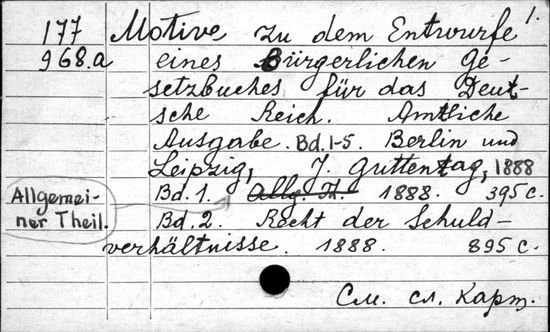 177 Motive zu dem Entwurfe 1.
968.a eines Bürgerlichen Ge-
setzbuches für das Deut-
sche Reich. Amtliche
Ausgabe. Bd. 1-5. Berlin und
Leipzig, J. Guttentag, 1888
Allgemei-
ner Theil.
Bd. 1. Allg. Th. 1888. 395 с.
Bd. 2. Recht der Schuld-
verhältnisse. 1888. 895 с.
См. сл. карт.